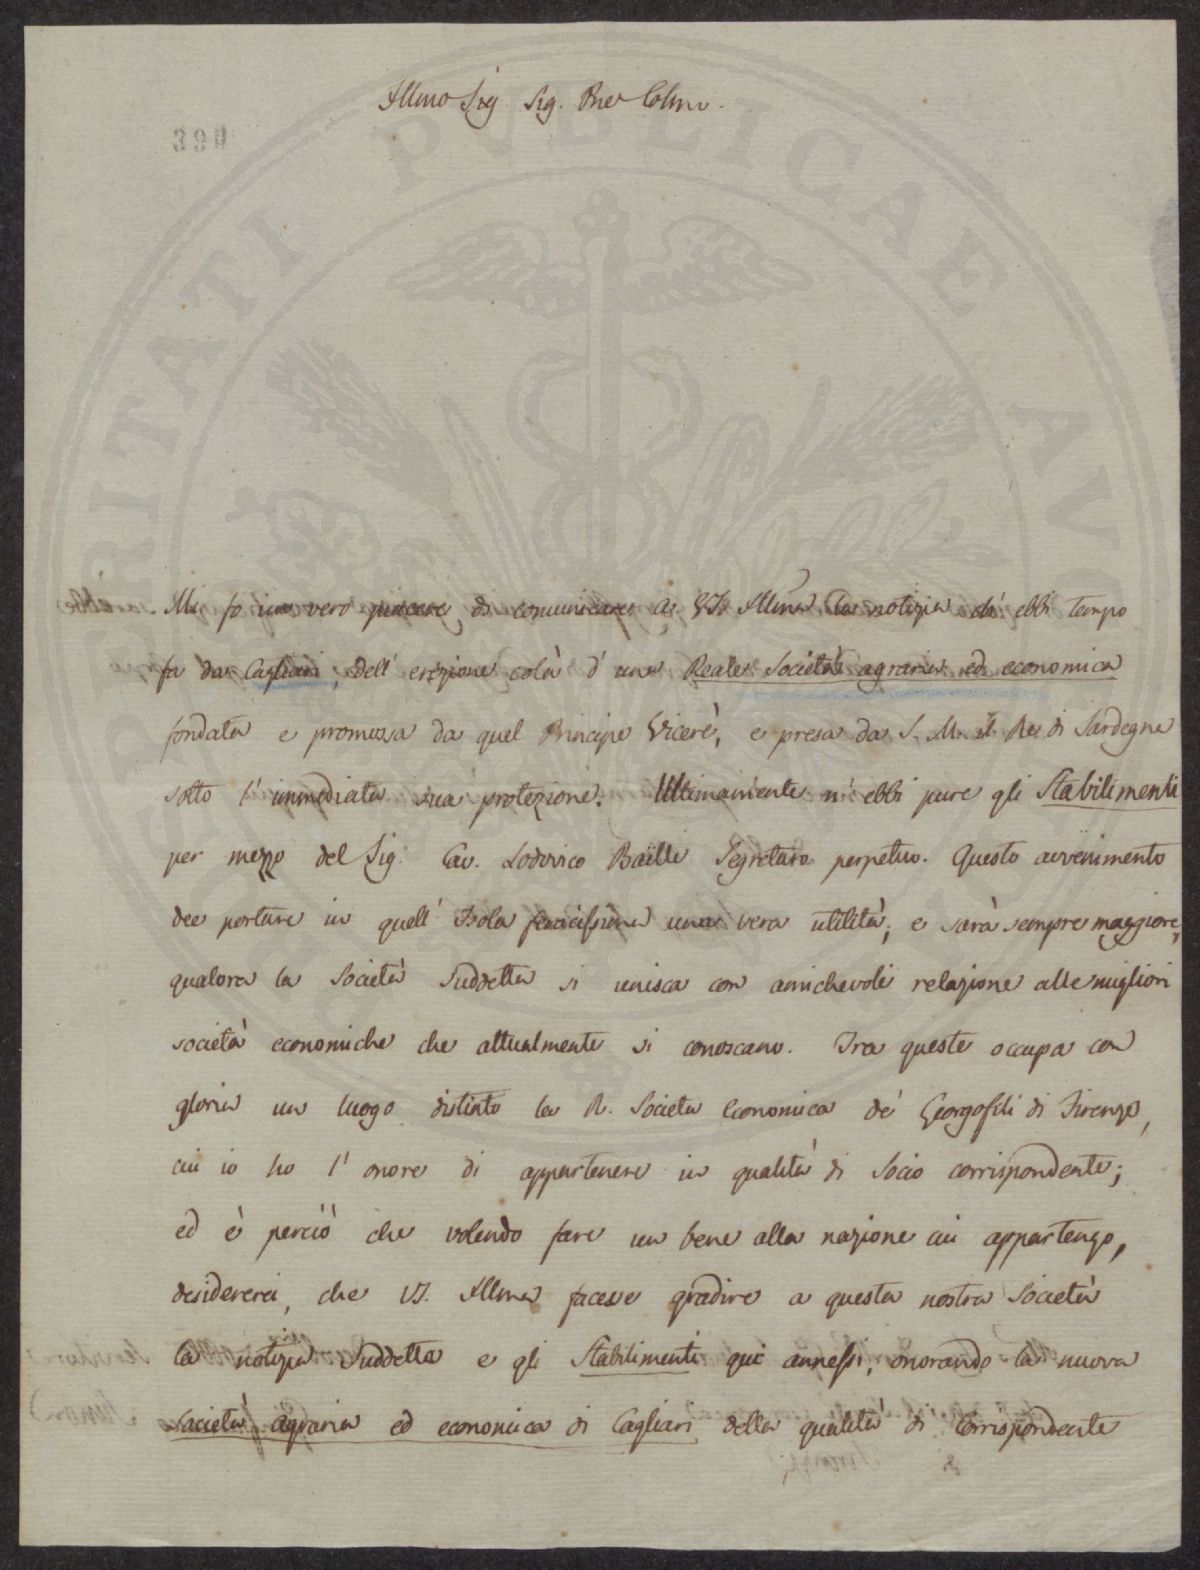 Illmo Sig Sig. Pne Colmo.
390
Mi fo un vero piacere di comunicare a VS. Illma la notizia ch' ebbi tempo
fa da Cagliari, dell' erezione colà d' una Reale Società agraria ed economica
fondata e promossa da quel Principe Vicerè, e presa da S. M. il Re di Sardegna
sotto l' immediata sua protezione. Ultimamente n' ebbi pure gli Stabilimenti
per mezzo del Sig. Cav. Lodovico Baïlle Segretaro perpetuo. Questo avvenimento
dee portare in quell' Isola feracissima una vera utilità, e sarà sempre maggiore,
qualora la Società suddetta si unisca con amichevole relazione alle migliori
società economiche che attualmente si conoscano. Tra queste occupa con
gloria un luogo distinto la R. Società Economica de' Georgofili di Firenze,
cui io ho l' onore di appartenere in qualità di Socio corrispondente;
ed è perciò che volendo fare un bene alla nazione cui appartengo,
desidererei, che VS. Illma facesse gradire a questa nostra Società
la notizia suddetta e gli Stabilimenti qui annessi, onorando la nuova
società agraria ed economica di Cagliari della qualità di Corrispondente
PVBLICAE
RITATI
AV